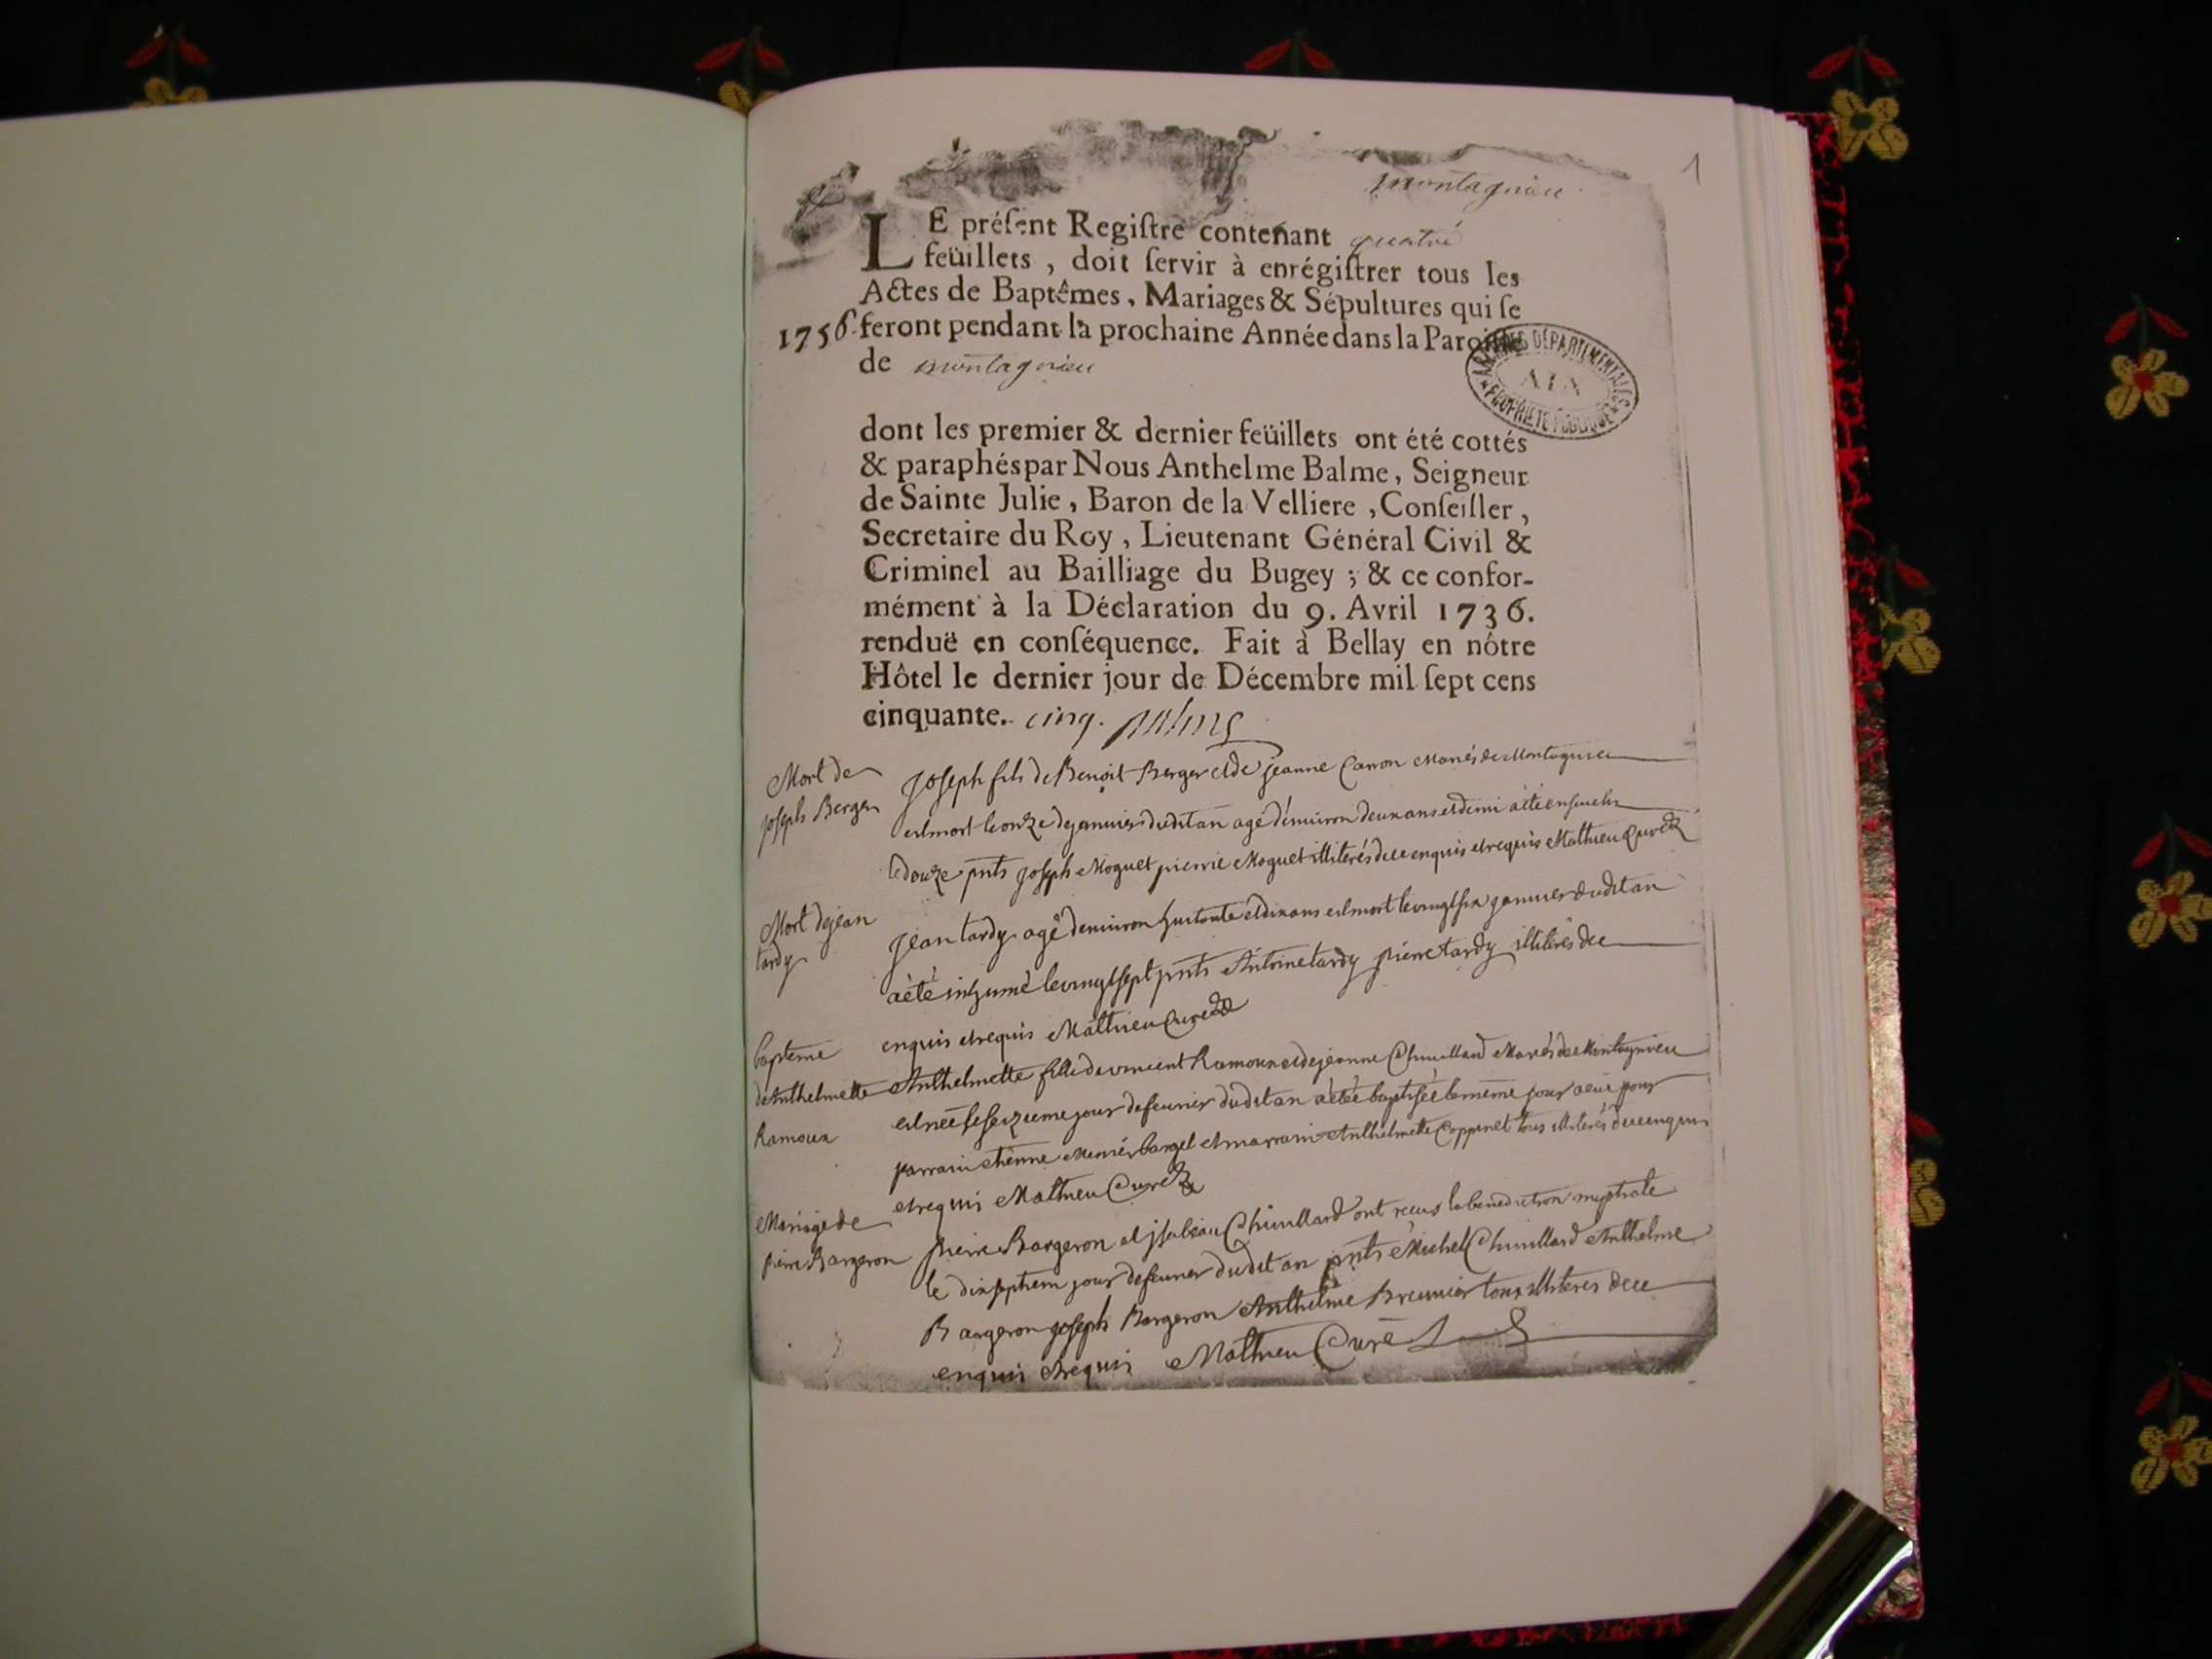 1
montagnieu
LE préſent Regiſtre contenant quatre
feüillets , doit ſervir à enrégiſtrer tous les
Actes de Baptêmes , Mariages & Sépultures qui ſe
1756 feront pendant la prochaine Année dans la Paroiſſe
de montagnieu
ARCHIVES DÉPARTEMENTALES
AIN
PROPRIÉTÉ PUBLIQUE
dont les premier & dernier feüillets ont été cottés
& paraphés par Nous Anthelme Balme , Seigneur
de Sainte Julie , Baron de la Velliere , Conſeiller ,
Secretaire du Roy , Lieutenant Général Civil &
Criminel au Bailliage du Bugey ; & ce confor-
mément à la Déclaration du 9. Avril 1736.
renduë en conſéquence. Fait à Bellay en nôtre
Hôtel le dernier jour de Décembre mil ſept cens
cinquante. cinq. Balme
Mort de
joseph Berger
Joseph fils de Benoit Berger et de jeanne Carron Mariés de Montagnieu
est mort le onze de janvier dudit an agé d'environ deux ans et demi a été enseveli
le douze pnts joseph Moguet pierre Moguet illiterés de ce enquis et requis Mathieu Curé
Mort de jean
tardy
Jean tardy agé d'environ huitante et dix ans est mort le vingt six janvier dudit an
a été inhumé le vingt sept pnts Antoine tardy pierre tardy illiterés de ce
enquis et requis Mathieu Curé
bapteme
de Anthelmette
Ramoux
Anthelmette fille de vincent Ramoux et de jeanne Chuillard Mariés de Montagnieu
est née le seizieme jour de fevrier dudit an a étée baptisée le meme jour a eu pour
parrain etienne Bargel et marraine Anthelmette Coppinet tous illiterés de ce enquis
et requis Mathieu Curé
Mariage de
pierre Bargeron
pierre Bargeron et jsabeau Chuillard ont receus la benediction nuptiale
le dix septieme jour de fevrier dudit an pnts Michel Chuillard Anthelme
Bargeron joseph Bargeron Anthelme Brunier tous illiterés de ce
enquis et requis Mathieu Curé